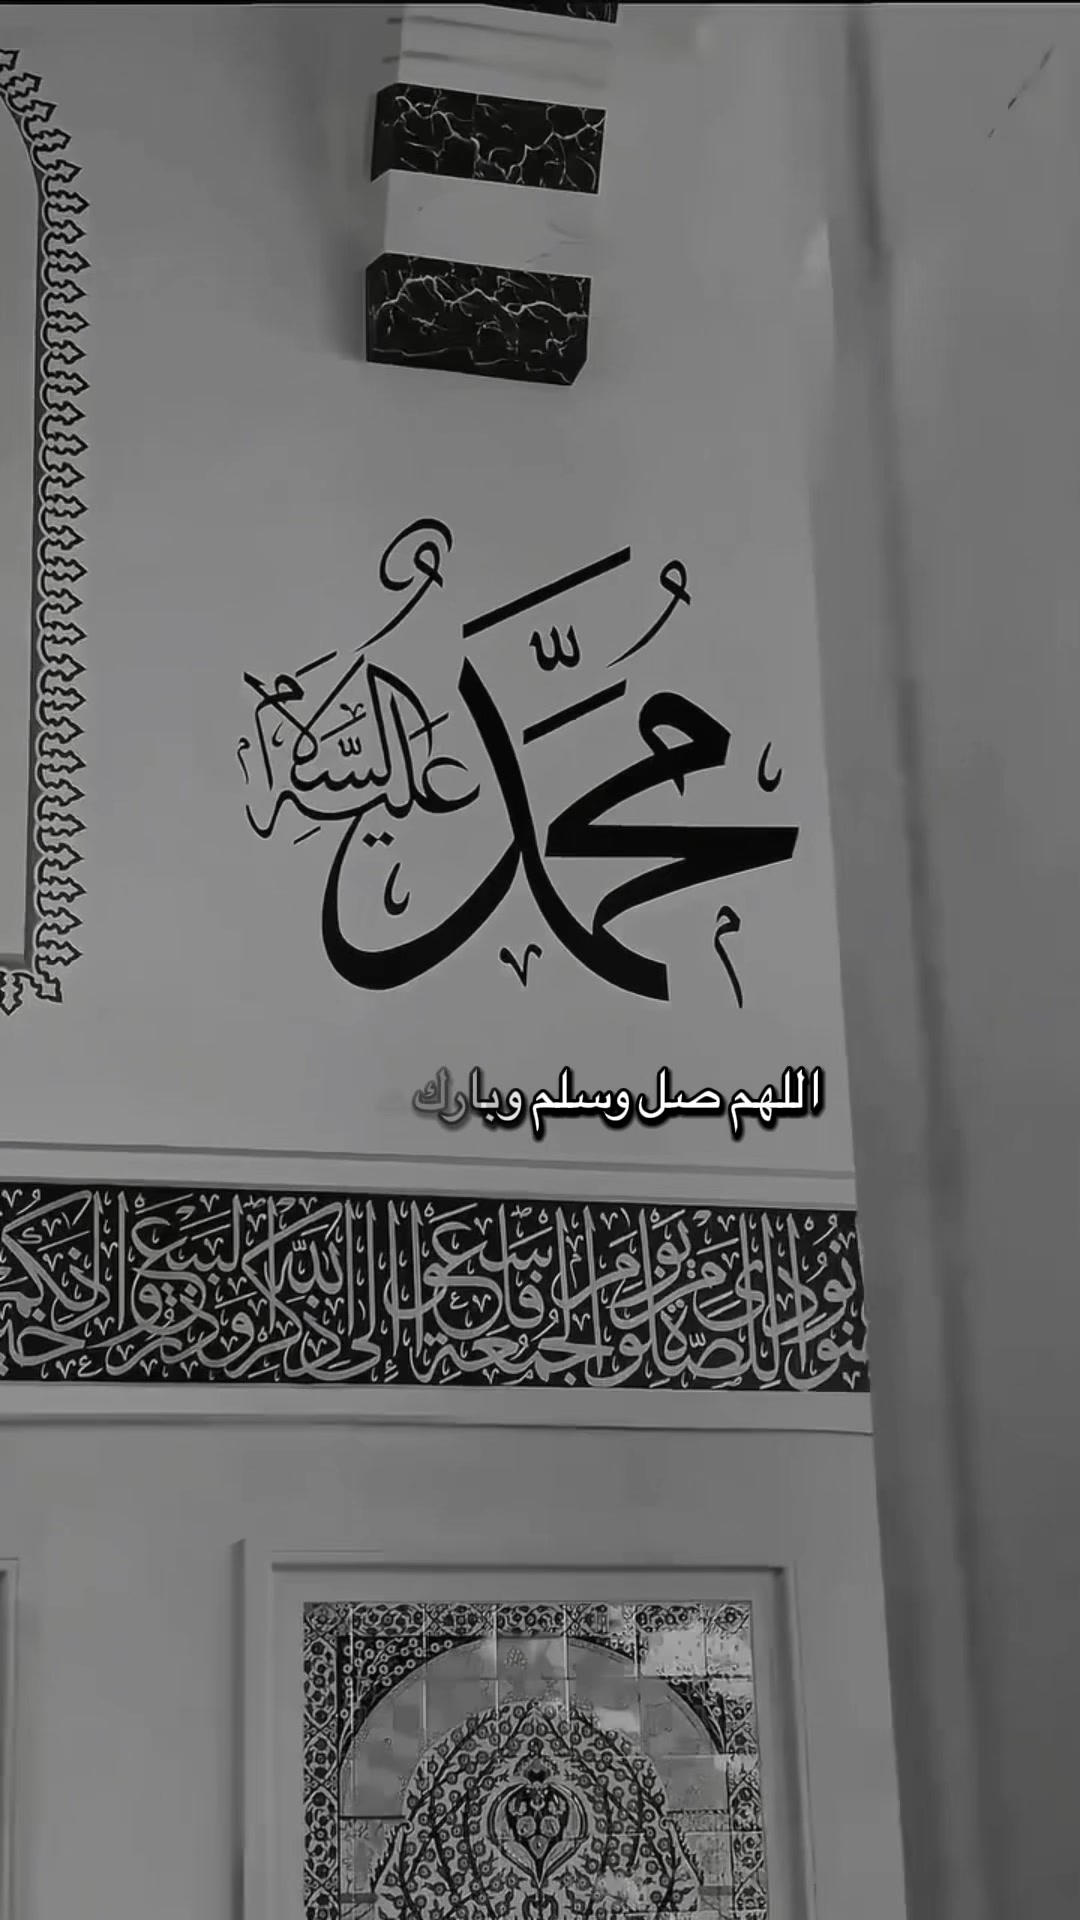 مُحَمَّد
عليه السَّلام
اللهم صل وسلم وبارك
نُودِيَ لِلصَّلٰوةِ مِنْ يَوْمِ الْجُمُعَةِ فَاسْعَوْا إِلٰى ذِكْرِ اللّٰهِ وَذَرُوا الْبَيْعَ